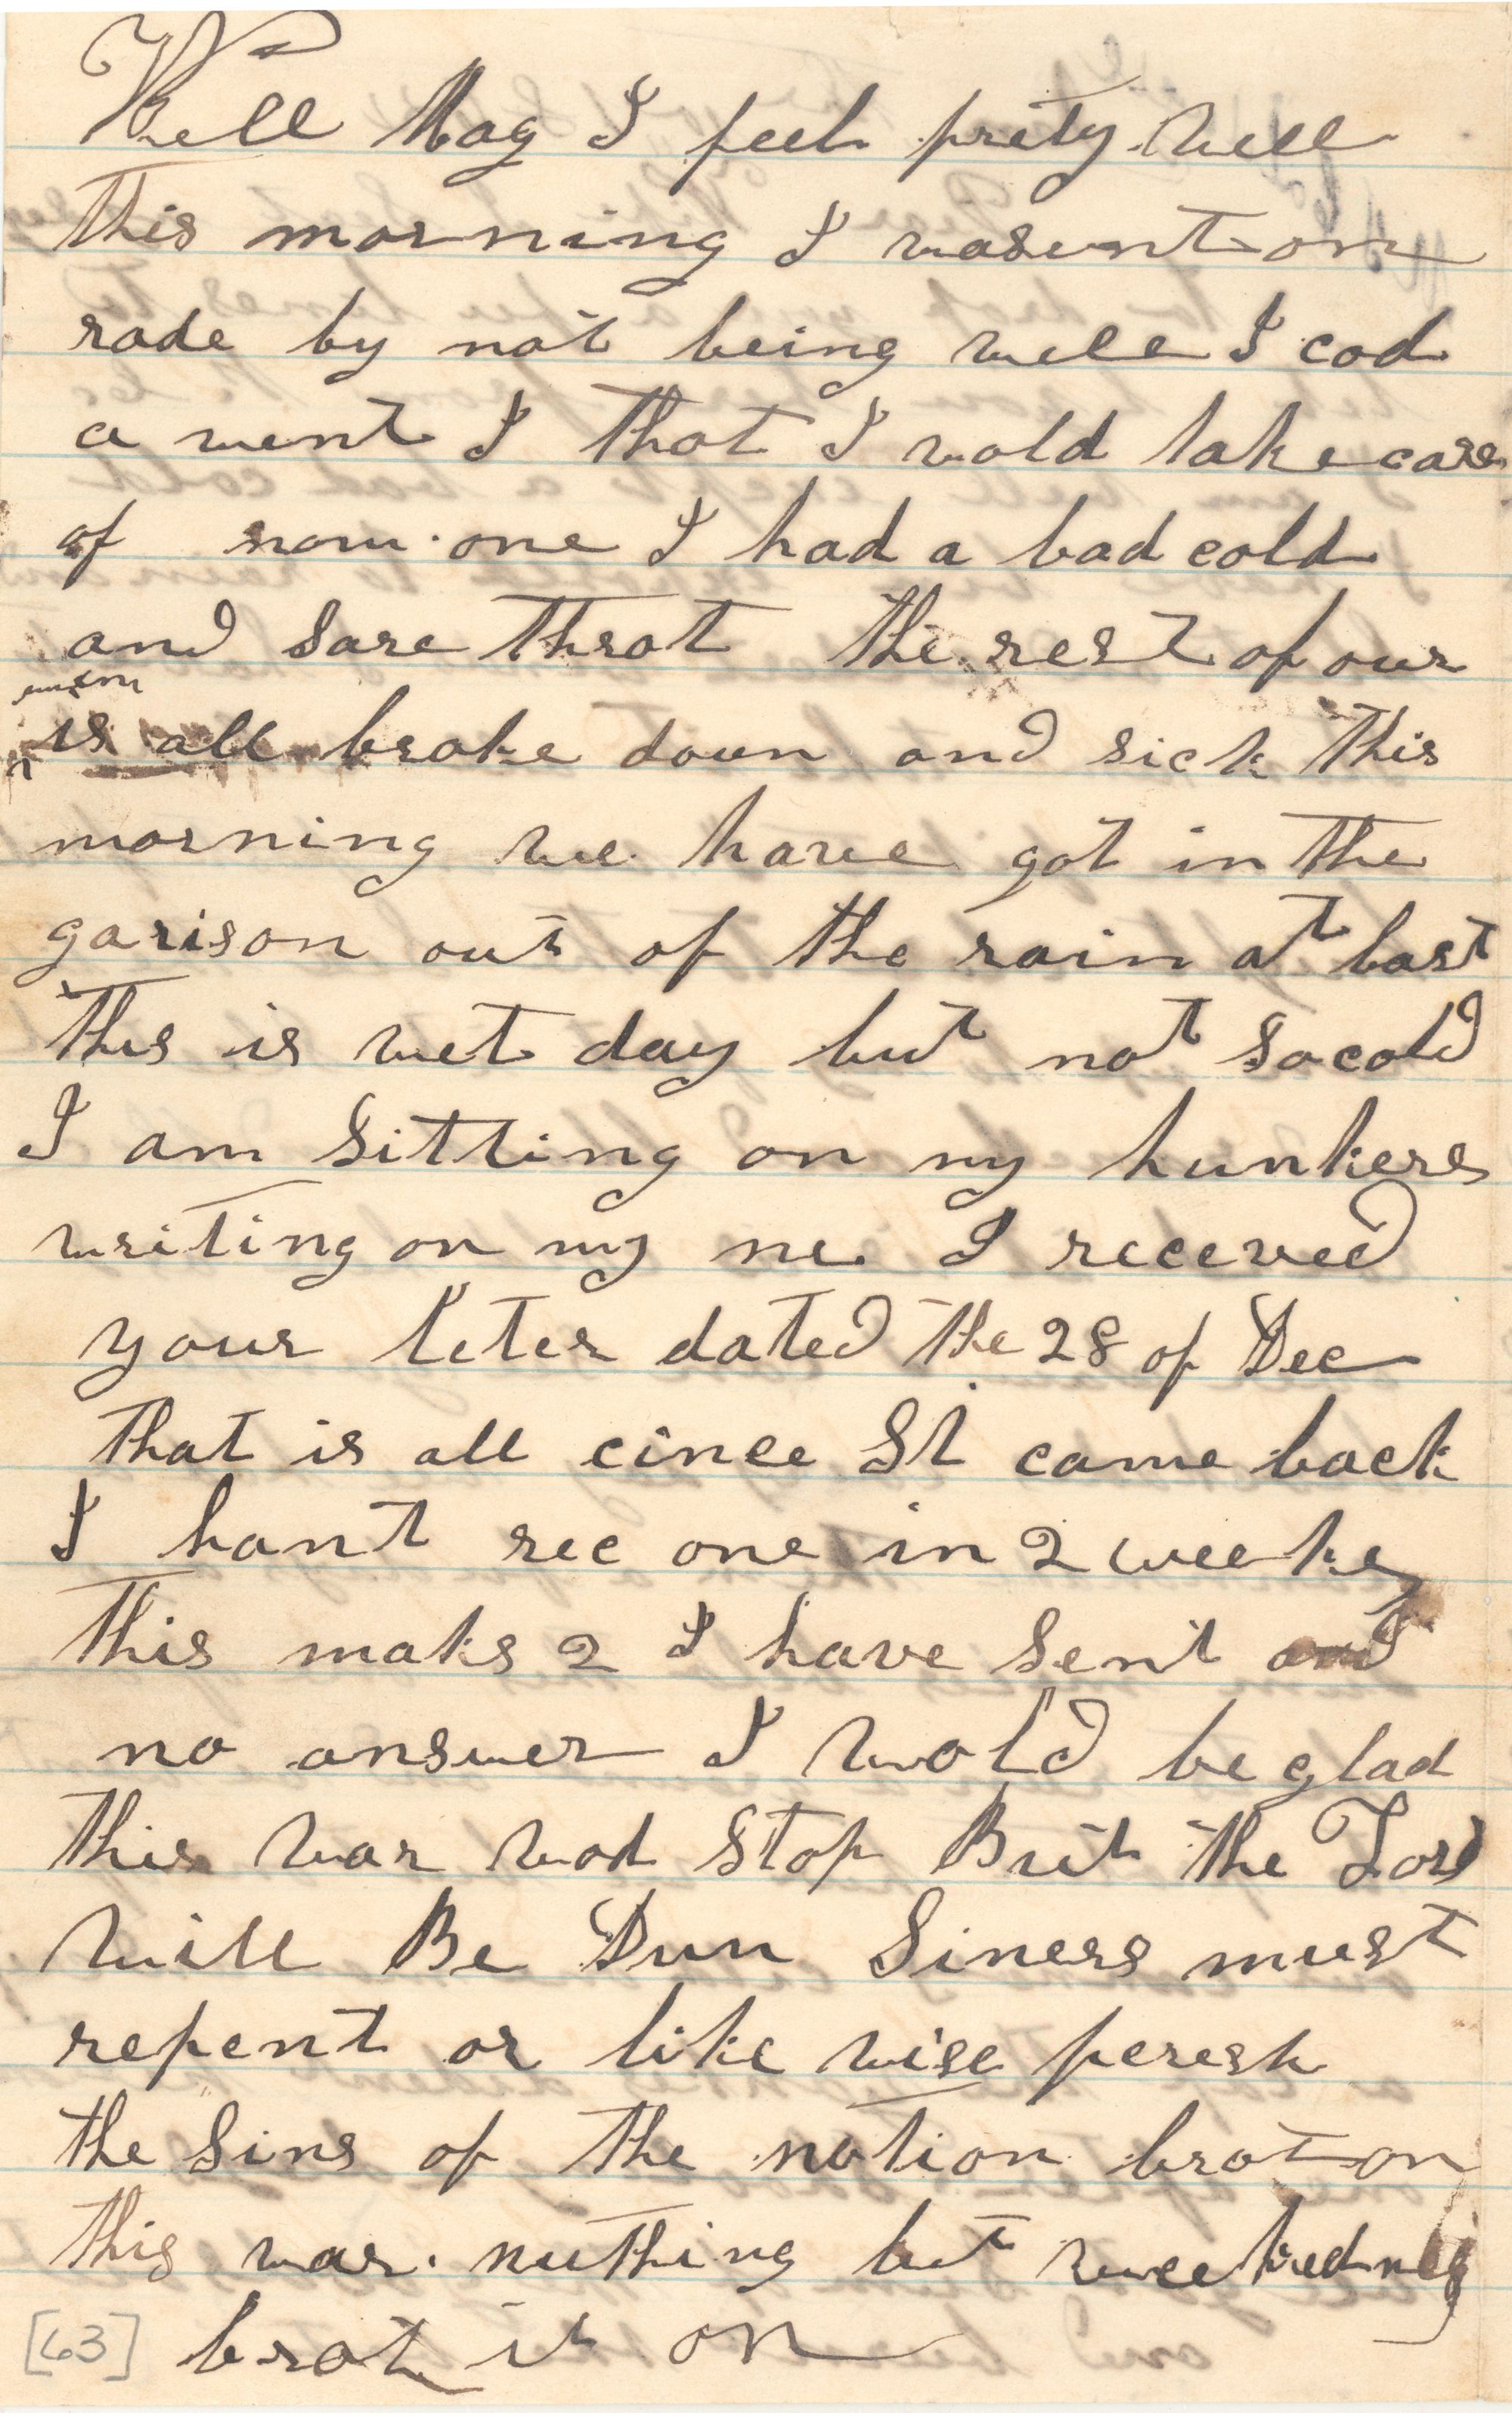 Well Mag I feel prety well
this morning I wasent on
rode by not being well I cod
a went I that I wold take care
of nom. one I had a bad cold
and sare throt the rest of our
is all broke down and sick this
morning we have got in the
garison out of the rain at last
this is wet day but not so cold
I am sitting on my hunkers
writing on my ne I receved
your leter dated the 28 of Dec
that is all cince St came back
I hant rec one in 2 weeks
this maks 2 I have sent and
no answer I wold be glad
this war wod stop But the Lord
will Be Dun Siners must
repent or like wise peresh
the Sins of the nation brot on
this war. nuthing but
[63] brot it on